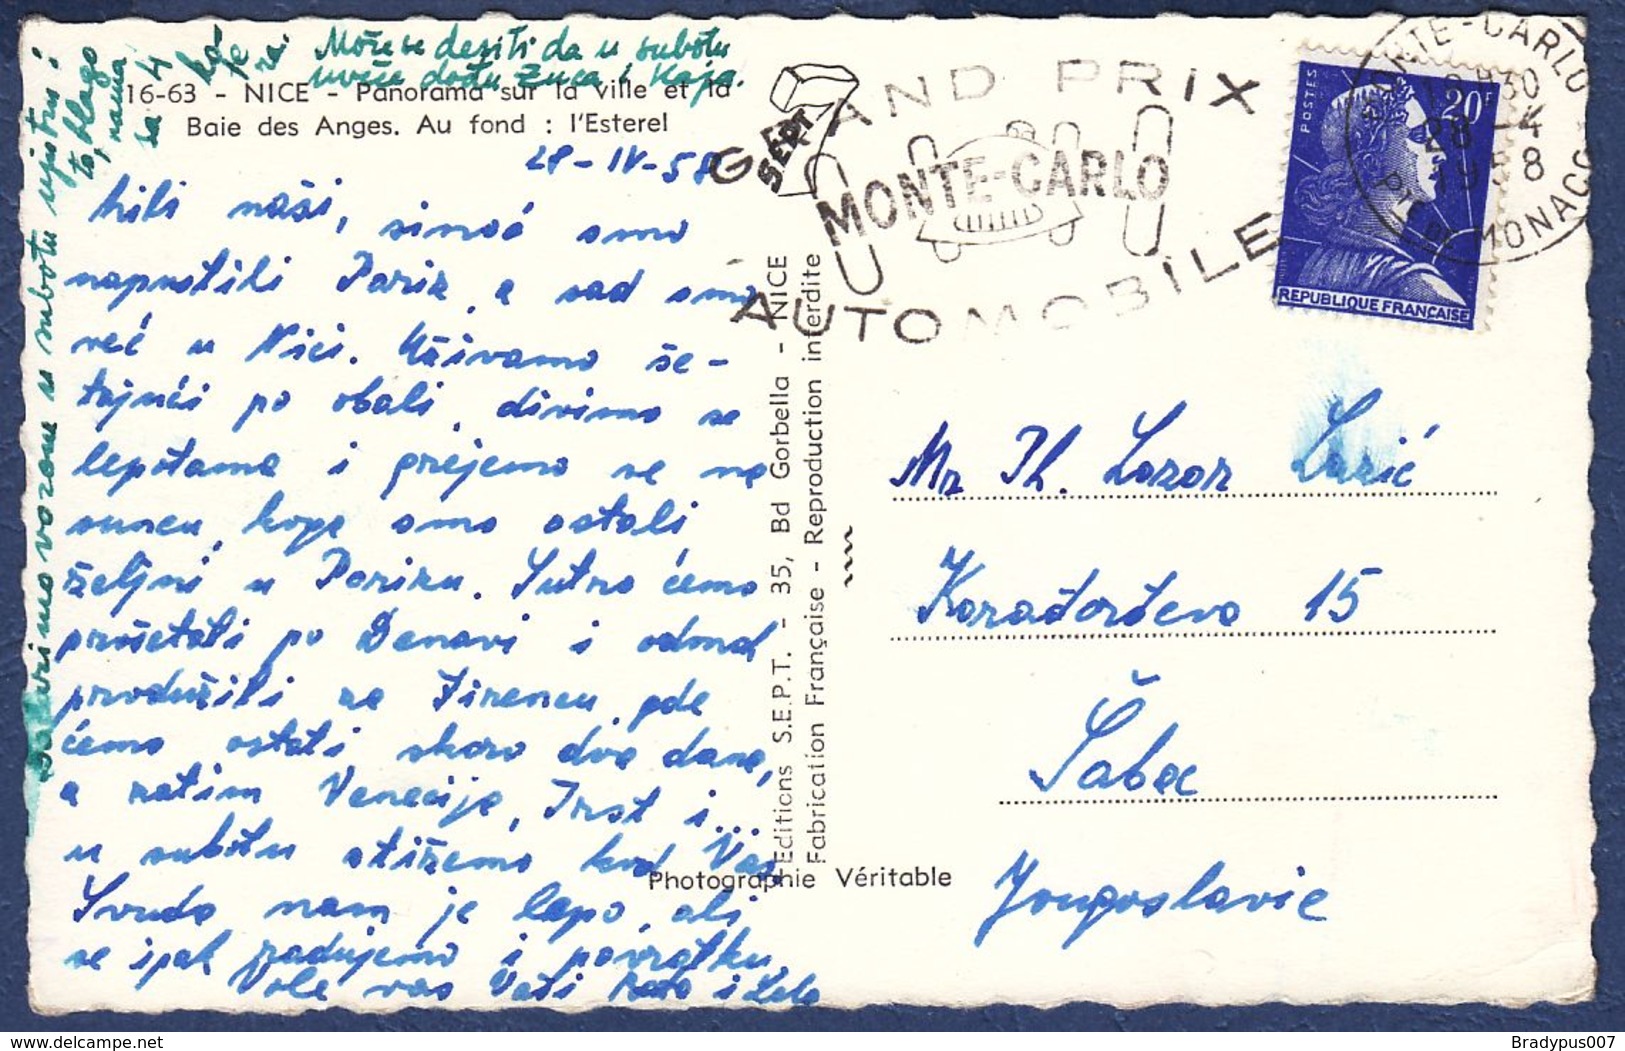 Može se desiti da u subotu
uveče dođu Zuca i Kaja.
16-63 - NICE - Panorama sur la ville et la
Baie des Anges. Au fond : l'Esterel
28-IV-58
Mili naši, sinoć smo
napustili Pariz, a sad smo
već u Nici. Uživamo še-
tajući po obali, divimo se
lepotama i grejemo se na
suncu, koga smo ostali
željni u Parizu. Sutra ćemo
prošetati po Đenovi i odmah
produžiti za Firencu, gde
ćemo ostati skoro dva dana,
a zatim Venecija, Trst i...
u subotu stižemo kod Vas.
Svuda nam je lepo, ali
se ipak radujemo i povratku.
Vole vas Vaši Rada i Lala
vozom u subotu ujutru i
to, blago
nama
sa 4
Editions S.E.P.T. - 35, Bd Gorbella - NICE
Fabrication Française - Reproduction interdite
Photographie Véritable
SEPT
GRAND PRIX
MONTE-CARLO
AUTOMOBILE
MONTE-CARLO
1830
28-4
1958
PTE DE MONACO
POSTES
20F
REPUBLIQUE FRANÇAISE
Mr Th. Lazar Lazić
Karađorđeva 15
Šabac
Yougoslavie
Bradypus007